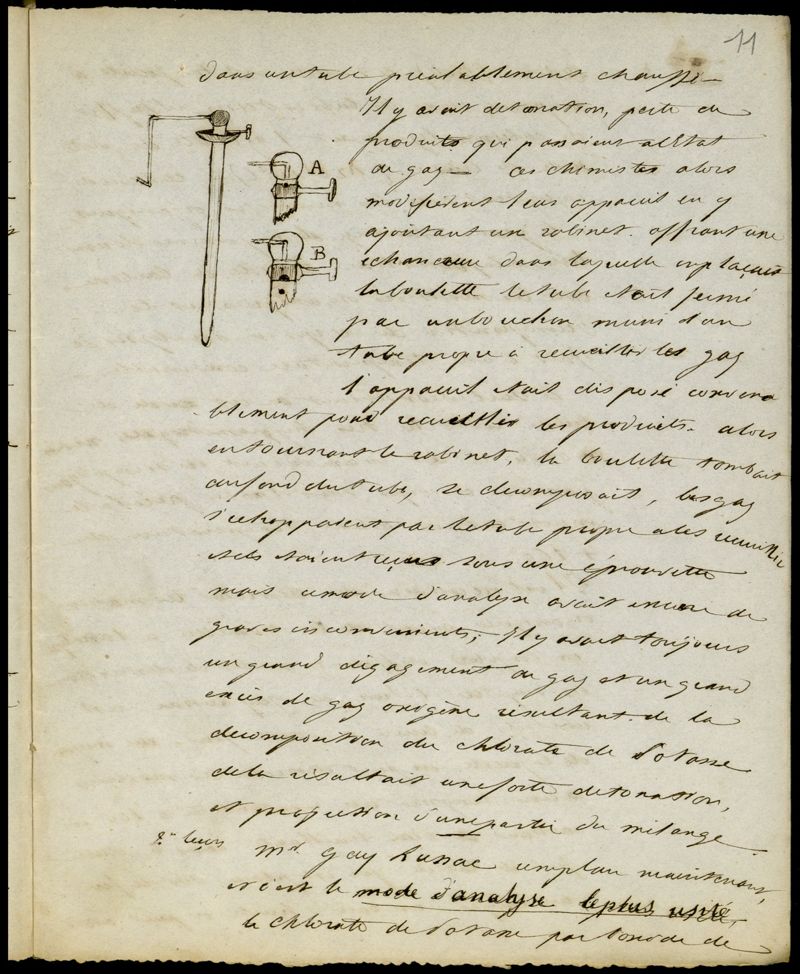 11
dans un tube préalablement chauffé
Il y avait detonation, perte de
produits qui passaient à l'Etat
de gaz — ces chimistes alors
modifièrent leur appareil en y
ajoutant un robinet offrant une
échancrure dans laquelle on plaçait
la boulette le tube était fermé
par un bouchon muni d'un
tube propre à recueillir les gaz
l'appareil était disposé convena
blement pour recueillir les produits. alors
en tournant le robinet, la boulette tombait
au fond du tube, se decomposait, les gaz
s'echappaient par le tube propre a les recueillir
et ils étaient reçus sous une éprouvette
mais ce mode d'analyse avait encore de
graves inconvenients; Il y avait toujours
un grand dégagement de gaz et un grand
excès de gaz oxigène résultant de la
decomposition du chlorate de Potasse
de la résultait une forte detonation,
et projection d'une partie du mélange
2e leçon Mr Gay Lussac remplace maintenant,
et c'est le mode d'analyse le plus usité,
le chlorate de Potasse par l'oxide de
A
B